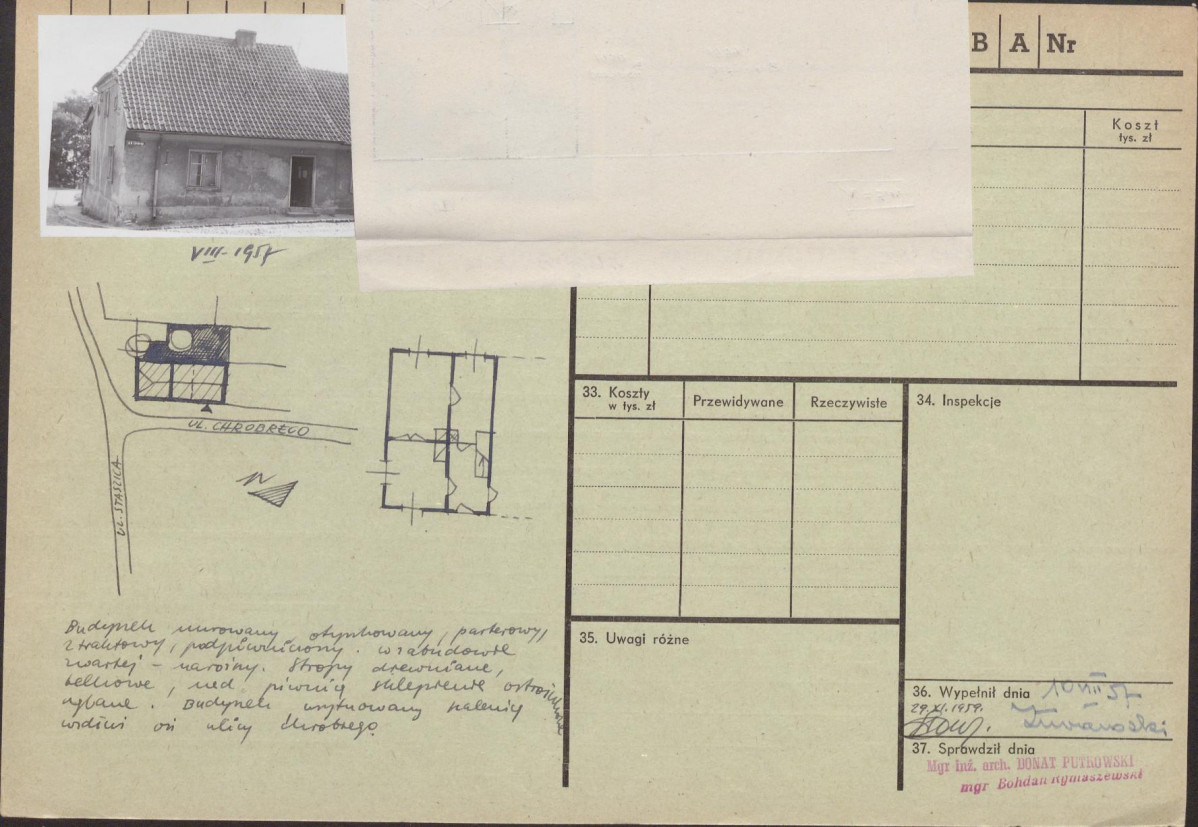 B A Nr
Koszt
tys. zł
VIII-1957
UL. CHROBREGO
UL. STASZICA
N
33. Koszty
w tys. zł
Przewidywane
Rzeczywiste
34. Inspekcje
Budynek murowany, otynkowany, parterowy,
2 traktowy, podpiwniczony. w zabudowie
zwartej - narożny. Stropy drewniane,
belkowe, nad piwnicą sklepienie
Budynek usytuowany kalenicą
wzdłuż osi ulicy Chrobrego.
35. Uwagi różne
36. Wypełnił dnia 10 VIII 57
29.XI.1959.
37. Sprawdził dnia
Mgr Inż. arch. DONAT PUTKOWSKI
mgr Bohdan Rymaszewski